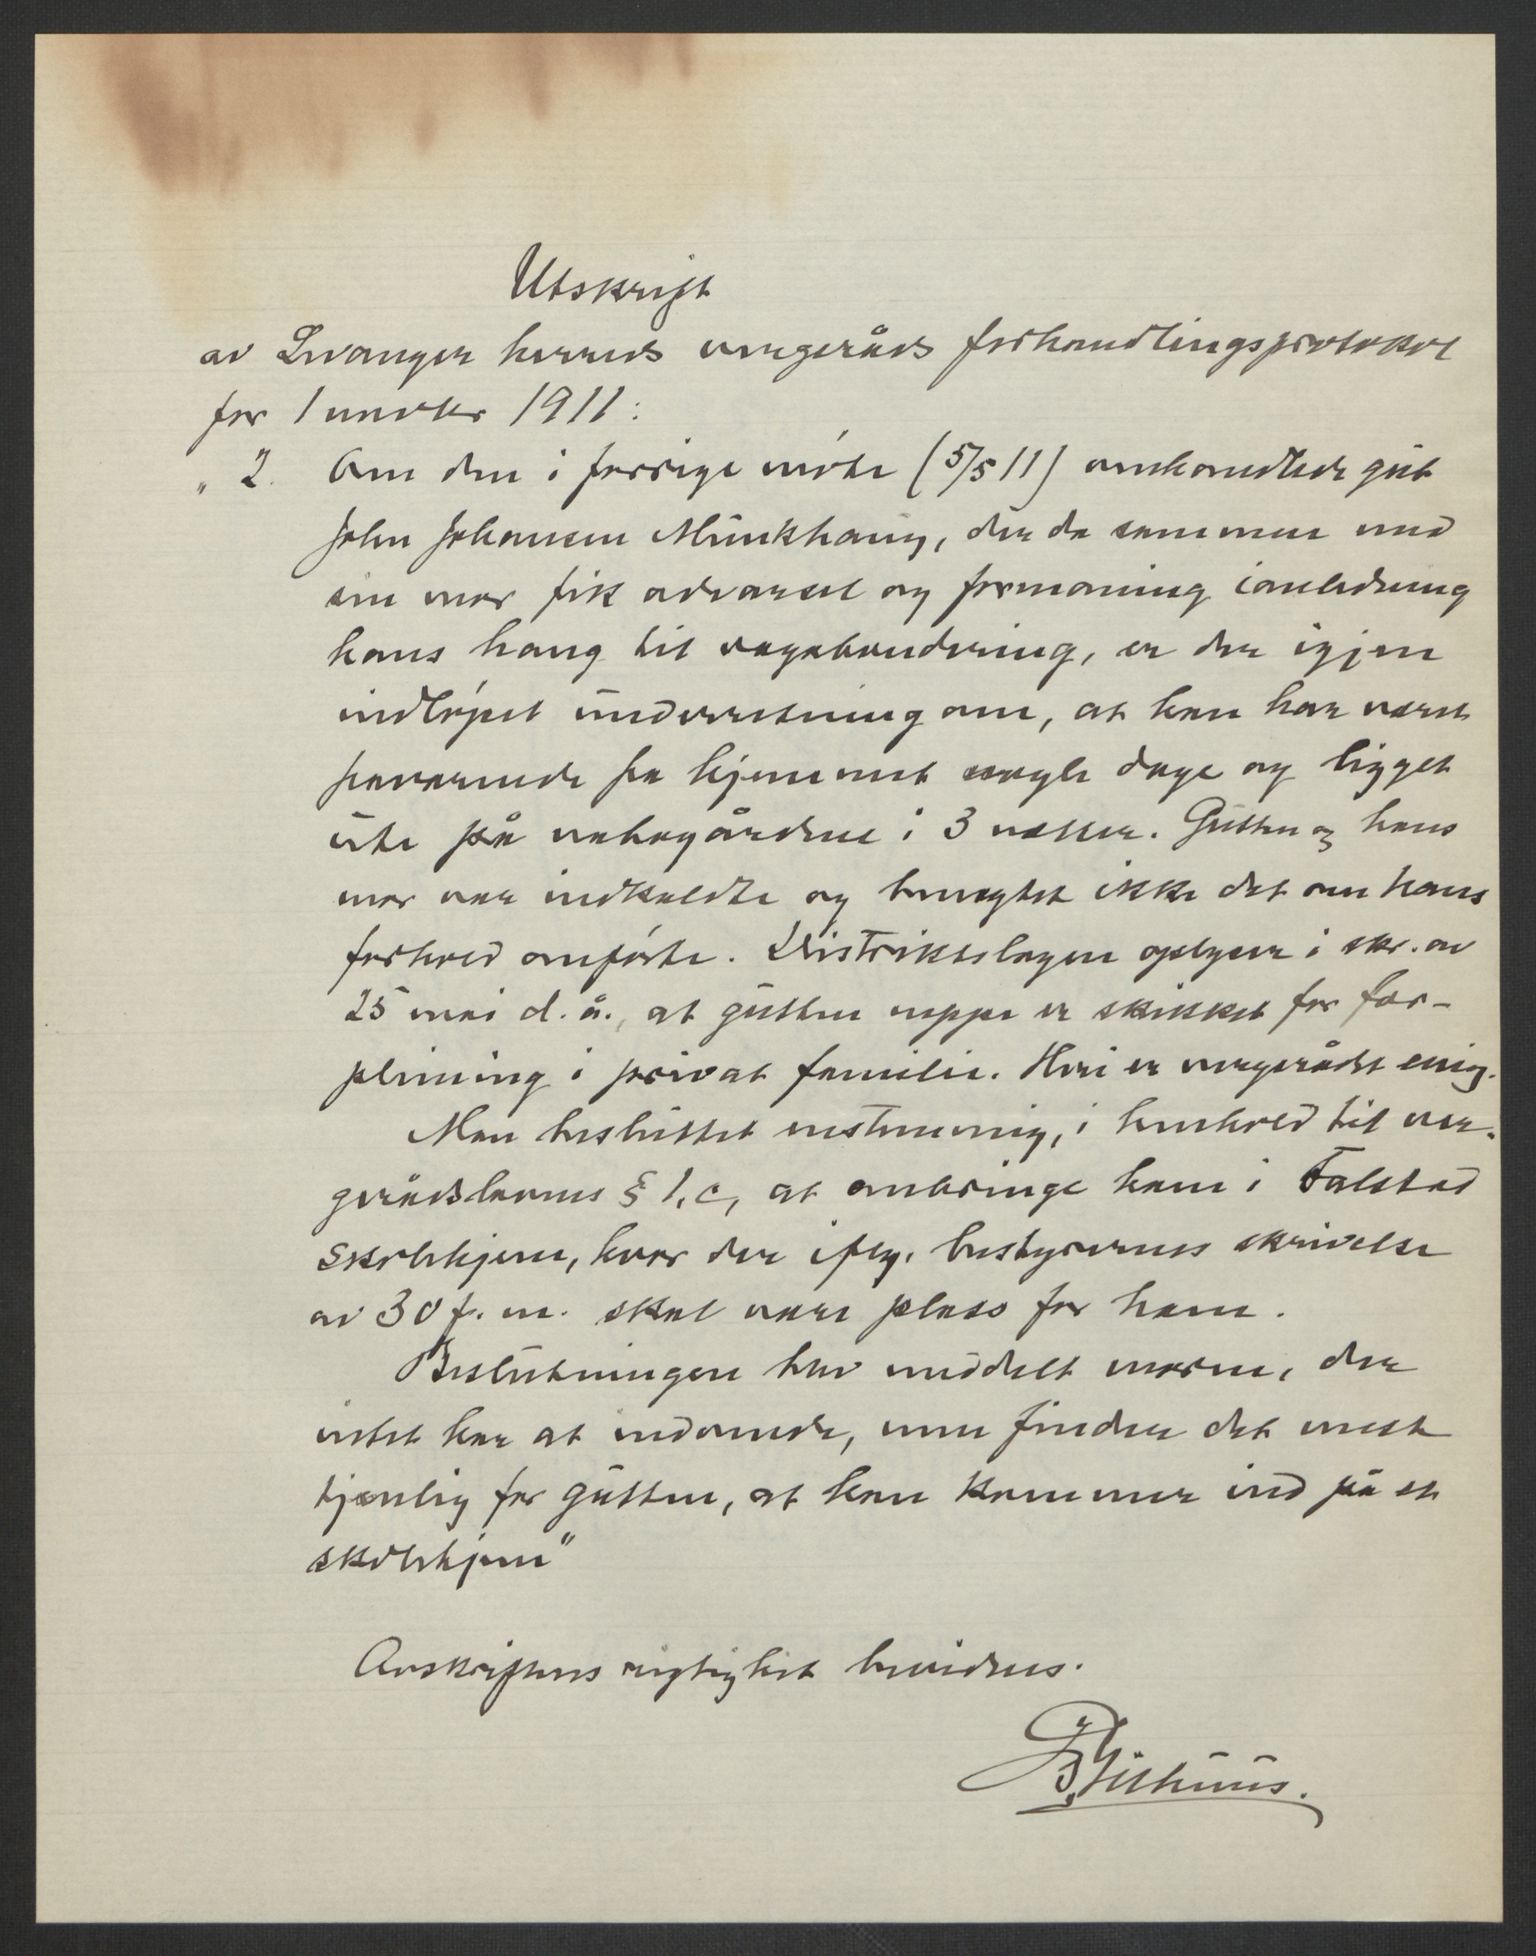 Utskrift
av Levanger herreds vergeråds forhandlingsprotokol
for 1 1911:
„ 2. Om den i forrige møte (5/5 11) omhandlede gut
John Johansen Munkhaug, der da sammen med
sin mor fik advarsel og formaning i anledning
hans hang til vagabondering, er der igjen
indløpet underretning om, at han har været
fraværende fra hjemmet nogle dage og ligget
ute på nabogårdene i 3 nætter. Gutten og hans
mor var indkaldte og benegtet ikke det om hans
forhold anførte. Distriktslægen oplyser i skr. av
25 mai d. å., at gutten neppe er skikket for for-
pleining i privat familie. Heri er vergerådet enig.
Man besluttet enstemmig, i henhold til ver-
gerådslovens § 1, c, at anbringe ham i Falstad
skolehjem, hvor der ifølg. bestyrerens skrivelse
av 30 f. m. skal være plass for ham.
Beslutningen blev meddelt moren, der
intet har at indvende, men finder det mest
tjenlig for gutten, at han kommer ind på et
skolehjem"
Avskriftens rigtighet bevidnes.